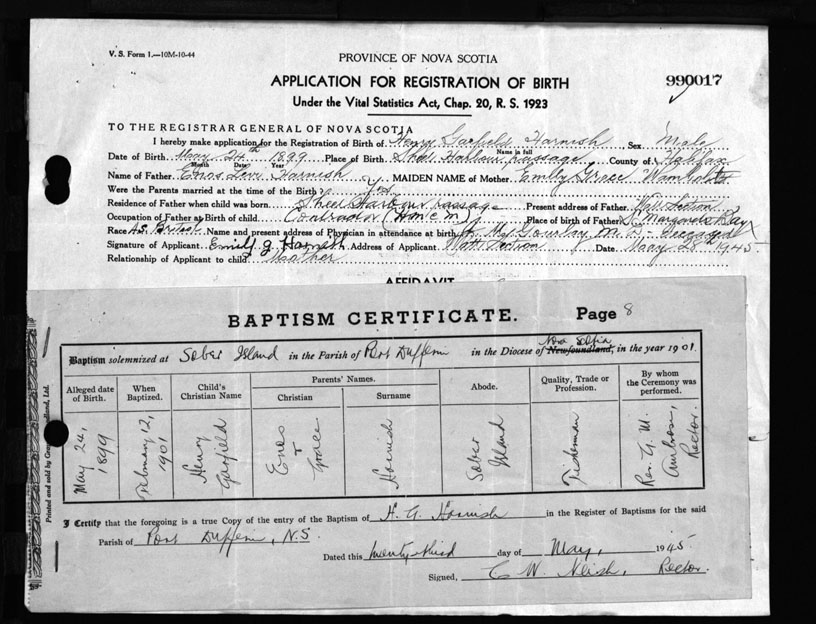 V. S. Form 1.—10M-10-44
PROVINCE OF NOVA SCOTIA
APPLICATION FOR REGISTRATION OF BIRTH
990017
Under the Vital Statistics Act, Chap. 20, R. S. 1923
TO THE REGISTRAR GENERAL OF NOVA SCOTIA
I hereby make application for the Registration of Birth of Henry Garfield Harnish Sex Male
Name in full
Date of Birth May 24th 1899 Place of Birth Sheet Harbour Passage County of Halifax
Month Date Year
Name of Father Enos Levi Harnish MAIDEN NAME of Mother Emily Grace
Were the Parents married at the time of Birth Yes
Residence of Father when child was born Sheet Harbour Passage Present address of Father Watt Section
Occupation of Father at Birth of child Contractor Place of birth of Father St. Margarets Bay
Race As. British Name and present address of Physician in attendance at birth Gourlay M.D. - Deceased
Signature of Applicant Emily G Harnish Address of Applicant Watt Section Date May 28th 1945
Relationship of Applicant to child Mother
AFFIDAVIT
BAPTISM CERTIFICATE. Page 8
Nova Scotia
Baptism solemnized at Sober Island in the Parish of Port Dufferin in the Diocese of Newfoundland, in the year 1901.
Alleged date of Birth.
When Baptized.
Child's Christian Name
Parents' Names.
Christian
Surname
Abode.
Quality, Trade or Profession.
By whom the Ceremony was performed.
May 24, 1899
February 12, 1901
Henry Garfield
Enos & Grace
Harnish
Sober Island
Fisherman
Rev. G. M. Ambrose, Rector.
I Certify that the foregoing is a true Copy of the entry of the Baptism of H. G. Harnish in the Register of Baptisms for the said
Parish of Port Dufferin, N.S.
Dated this twenty-third day of May, 1945
Signed, C W. Neish, Rector.
Printed and sold by
Ltd.